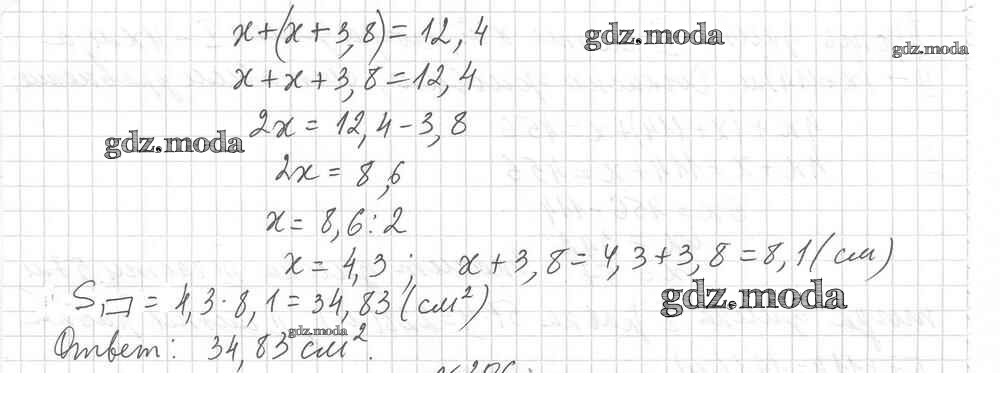 x+(x+3,8)=12,4
gdz.moda
gdz.moda
x+x+3,8=12,4
2x=12,4-3,8
gdz.moda
2x=8,6
x=8,6:2
x=4,3; x+3,8=4,3+3,8=8,1(см)
gdz.moda
S▭=4,3·8,1=34,83(см²)
gdz.moda
Ответ: 34,83 см².